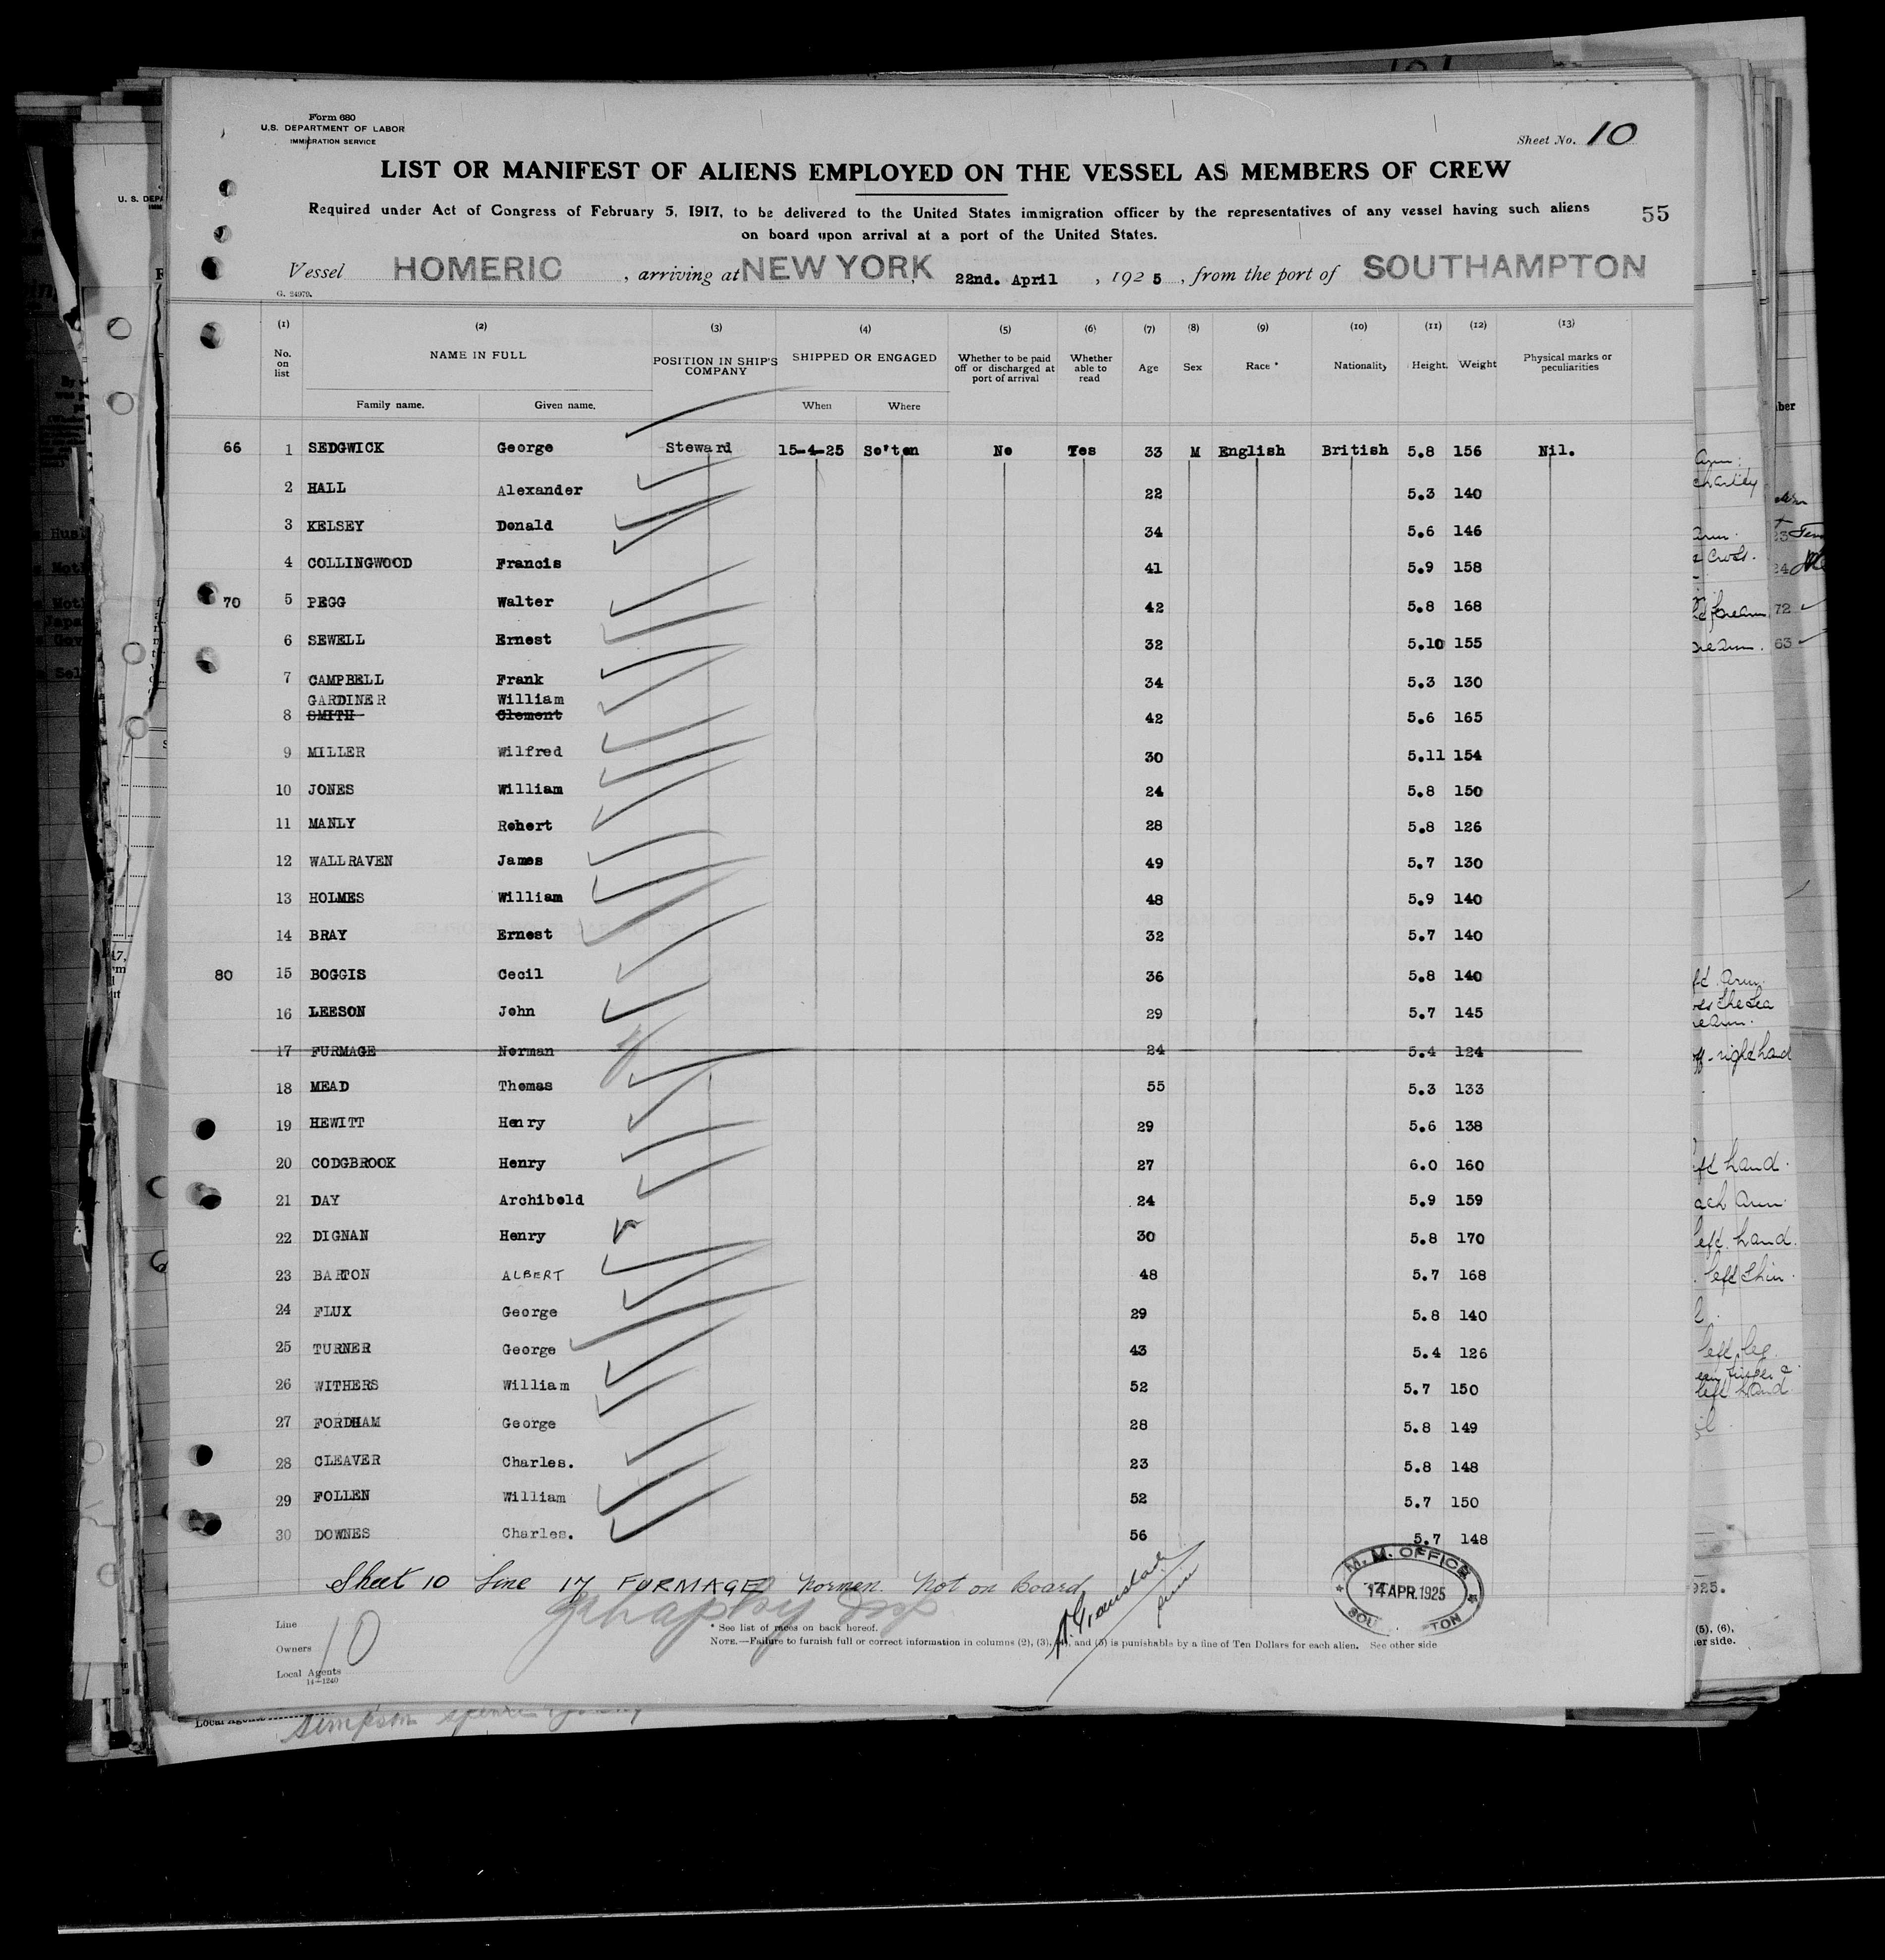 Form 680
U.S. DEPARTMENT OF LABOR
IMMIGRATION SERVICE
Sheet No. 10
LIST OR MANIFEST OF ALIENS EMPLOYED ON THE VESSEL AS MEMBERS OF CREW
Required under Act of Congress of February 5, 1917, to be delivered to the United States immigration officer by the representatives of any vessel having such aliens
on board upon arrival at a port of the United States.
55
Vessel HOMERIC, arriving at NEW YORK 22nd. April, 1925, from the port of SOUTHAMPTON
G. 24979.
(1) (2) (3) (4) (5) (6) (7) (8) (9) (10) (11) (12) (13)
No. on list NAME IN FULL POSITION IN SHIP'S COMPANY SHIPPED OR ENGAGED Whether to be paid off or discharged at port of arrival Whether able to read Age Sex Race * Nationality Height. Weight Physical marks or peculiarities
Family name. Given name. When Where
66 1 SEDGWICK George Steward 15-4-25 So'ton No Yes 33 M English British 5.8 156 Nil.
2 HALL Alexander 22 5.3 140
3 KELSEY Donald 34 5.6 146
4 COLLINGWOOD Francis 41 5.9 158
70 5 PEGG Walter 42 5.8 168
6 SEWELL Ernest 32 5.10 155
7 CAMPBELL Frank 34 5.3 130
GARDINER William
8 SMITH Clement 42 5.6 165
9 MILLER Wilfred 30 5.11 154
10 JONES William 24 5.8 150
11 MANLY Robert 28 5.8 126
12 WALLRAVEN James 49 5.7 130
13 HOLMES William 48 5.9 140
14 BRAY Ernest 32 5.7 140
80 15 BOGGIS Cecil 36 5.8 140
16 LEESON John 29 5.7 145
17 FURMAGE Norman 24 5.4 124
18 MEAD Thomas 55 5.3 133
19 HEWITT Henry 29 5.6 138
20 CODGBROOK Henry 27 6.0 160
21 DAY Archibold 24 5.9 159
22 DIGNAN Henry 30 5.8 170
23 BARTON ALBERT 48 5.7 168
24 FLUX George 29 5.8 140
25 TURNER George 43 5.4 126
26 WITHERS William 52 5.7 150
27 FORDHAM George 28 5.8 149
28 CLEAVER Charles. 23 5.8 148
29 FOLLEN William 52 5.7 150
30 DOWNES Charles. 56 5.7 148
Sheet 10 Line 17 FURMAGE Norman Not on Board
M. M. OFFICE
14 APR. 1925
SOU TON
Line
Owners
Local Agents
10
14—1240
* See list of races on back hereof.
NOTE.—Failure to furnish full or correct information in columns (2), (3), (4), and (5) is punishable by a fine of Ten Dollars for each alien. See other side